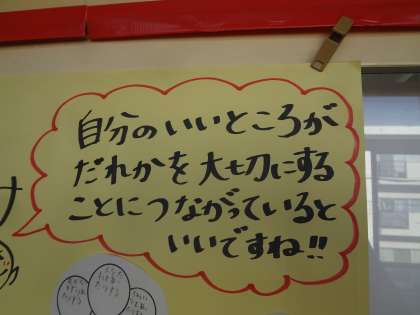 自分のいいところが
だれかを大切にする
ことにつながっていると
いいですね!!